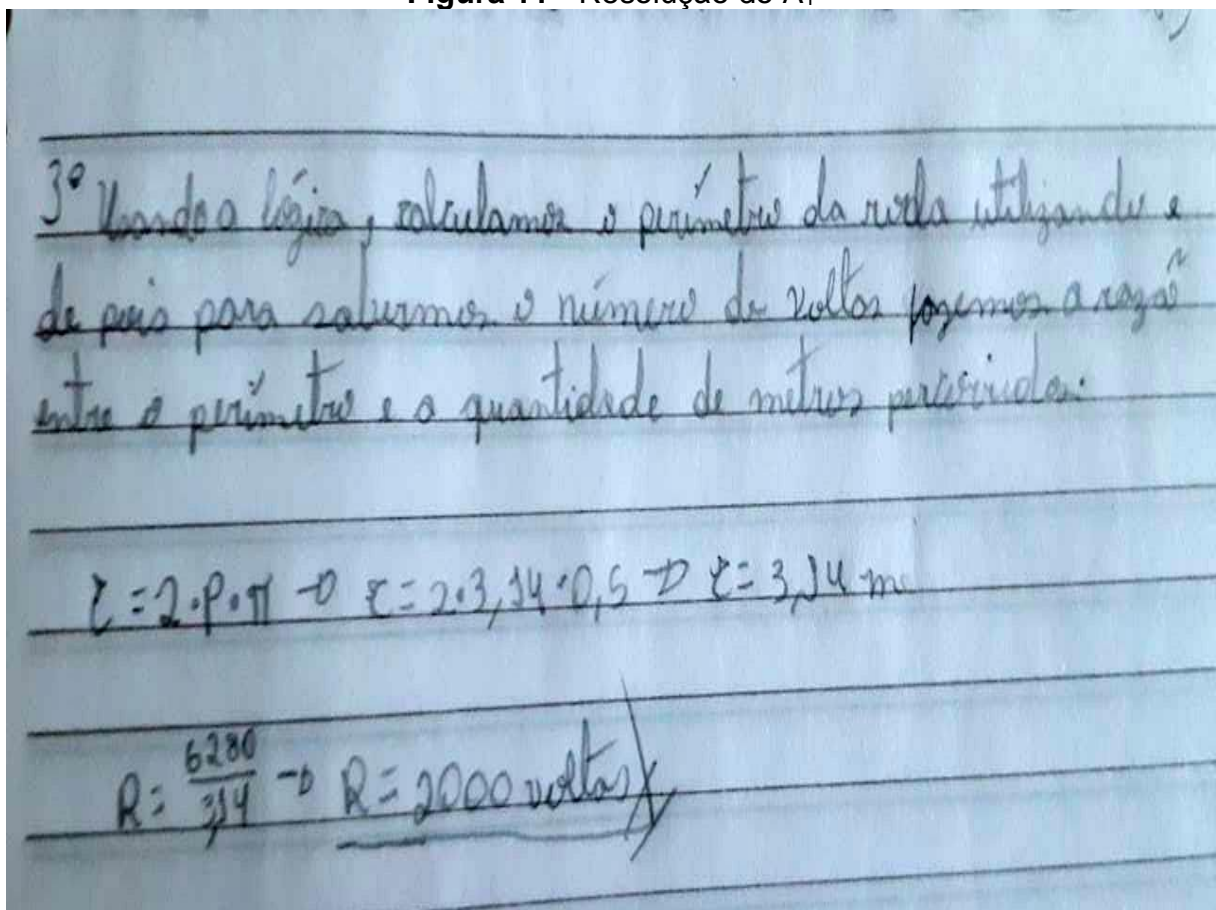 Resolução de A₁
3º Usando a lógica, calculamos o perímetro da roda utilizando e
de pois para sabermos o número de voltas fazemos a razão
entre o perímetro e a quantidade de metros percorridos:
C = 2·P·π → C = 2·3,14·0,5 → C = 3,14 m
R = 6280/3,14 → R = 2000 voltas